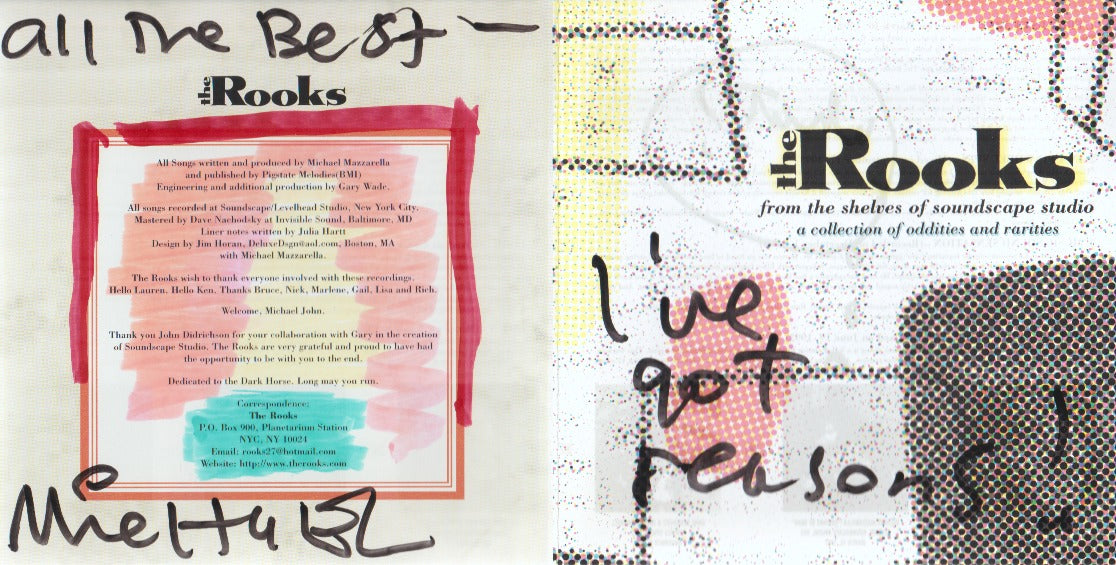 all The Best —
the Rooks
All Songs written and produced by Michael Mazzarella
and published by Pigstate Melodies(BMI)
Engineering and additional production by Gary Wade.
All songs recorded at Soundscape/Levelhead Studio, New York City.
Mastered by Dave Nachodsky at Invisible Sound, Baltimore, MD
Liner notes written by Julia Hartt
Design by Jim Horan, DeluxeDsgn@aol.com, Boston, MA
with Michael Mazzarella.
The Rooks wish to thank everyone involved with these recordings.
Hello Lauren. Hello Ken. Thanks Bruce, Nick, Marlene, Gail, Lisa and Rich.
Welcome, Michael John.
Thank you John Didrichson for your collaboration with Gary in the creation
of Soundscape Studio. The Rooks are very grateful and proud to have had
the opportunity to be with you to the end.
Dedicated to the Dark Horse. Long may you run.
Correspondence:
The Rooks
P.O. Box 900, Planetarium Station
NYC, NY 10024
Email: rooks27@hotmail.com
Website: http://www.therooks.com
the Rooks
from the shelves of soundscape studio
a collection of oddities and rarities
I've
got
reasons!